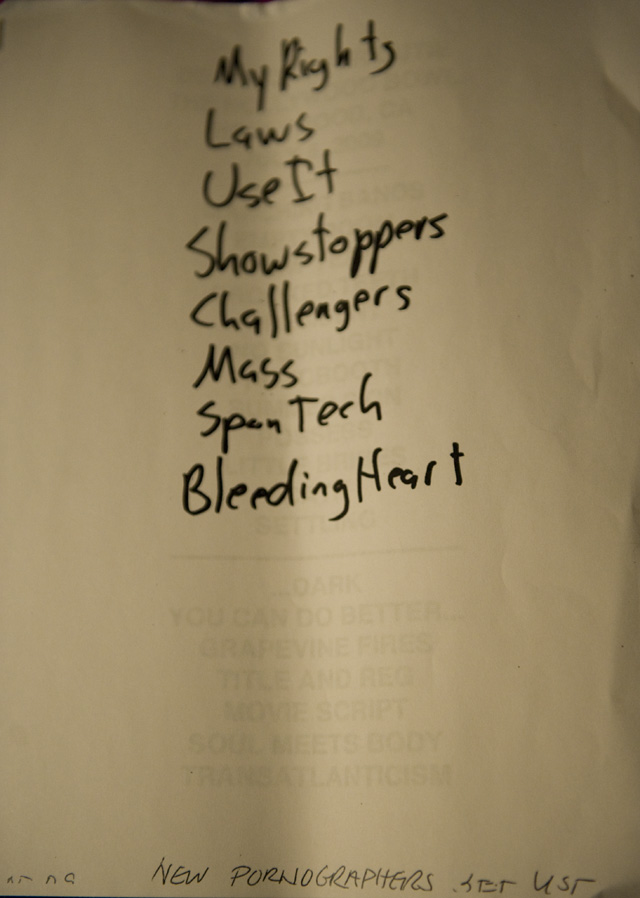 My Rights
Laws
Use It
Showstoppers
Challengers
Mass
Span Tech
Bleeding Heart
SETTLING
...DARK
YOU CAN DO BETTER...
GRAPEVINE FIRES
TITLE AND REG
MOVIE SCRIPT
SOUL MEETS BODY
TRANSATLANTICISM
NEW PORNOGRAPHERS SET LIST